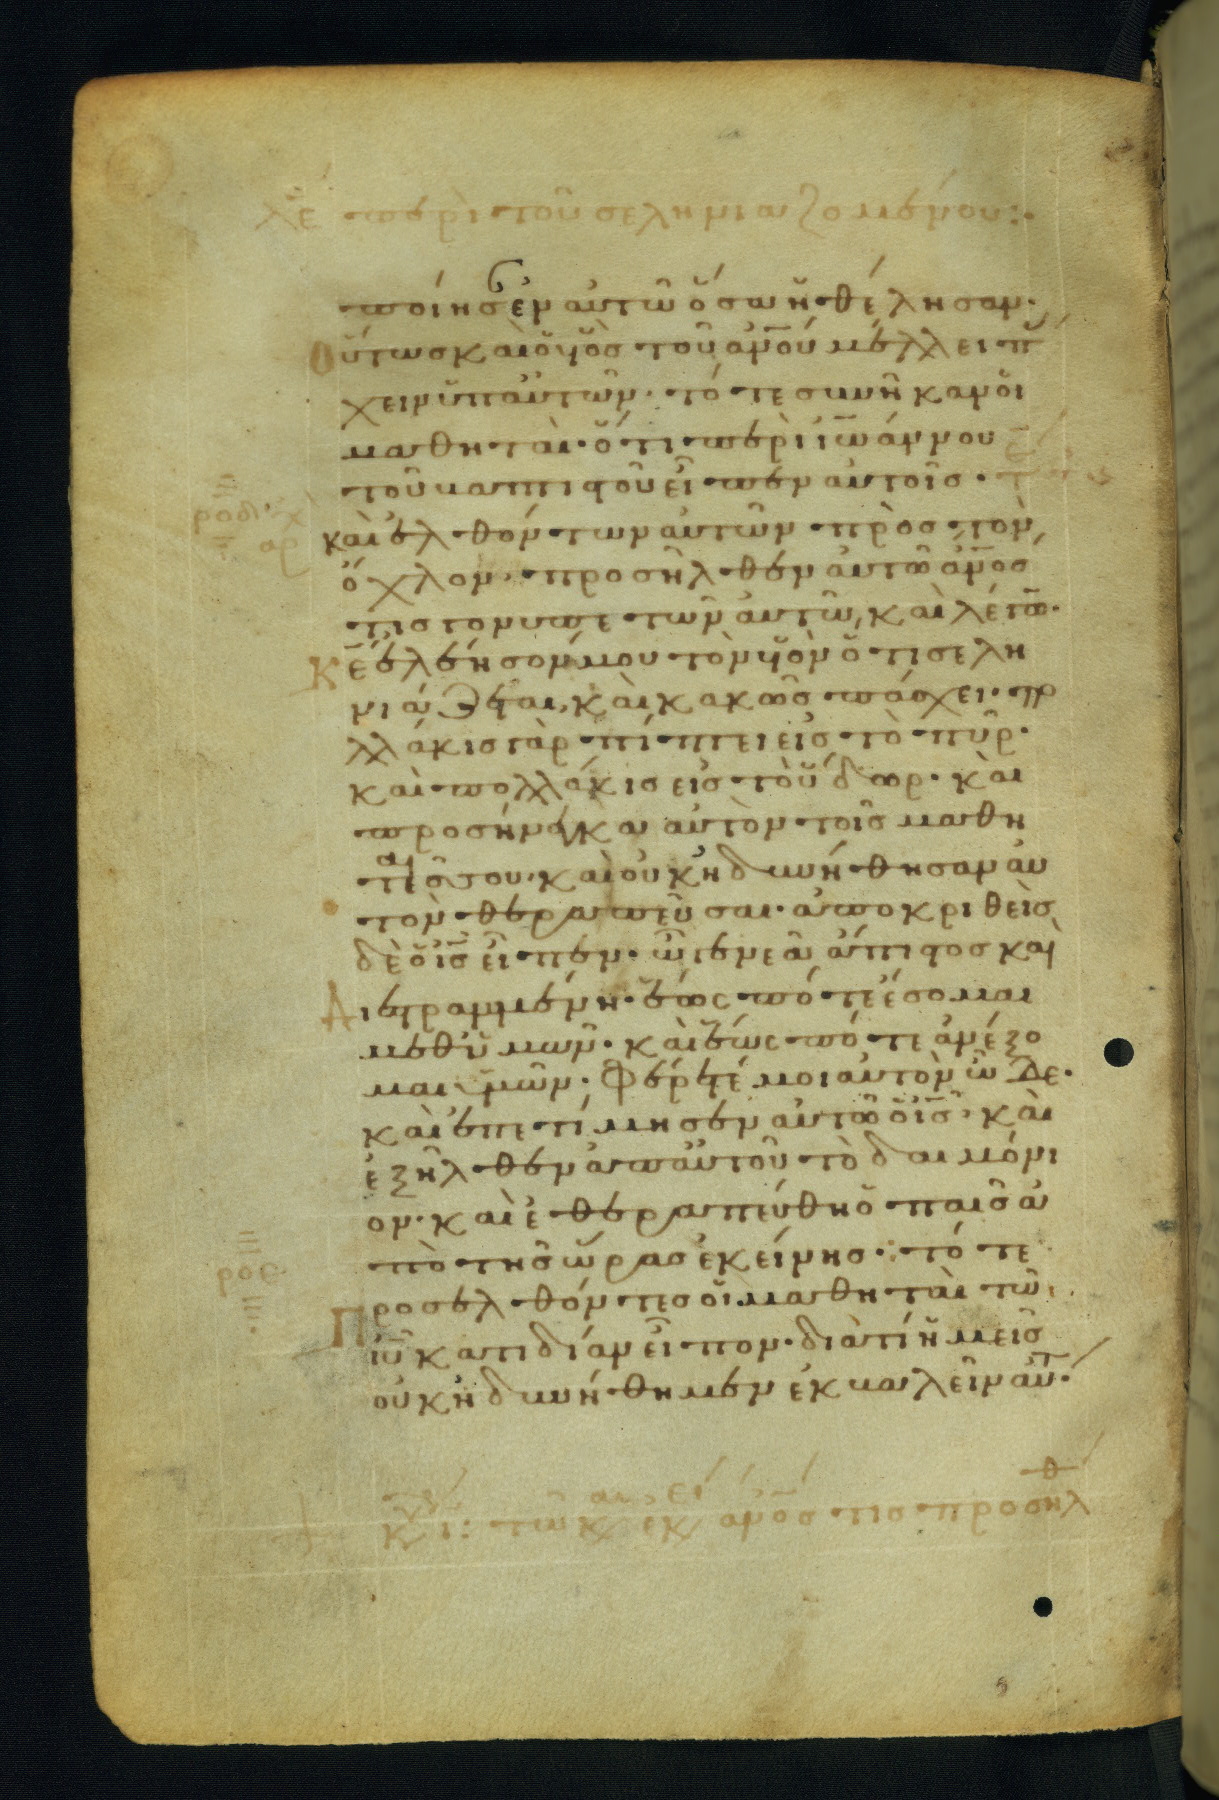 λε περὶ τοῦ σεληνιαζομένου:·
ποίησἐν αὐτῶ ὅσα ἠθέλησαν·
Οὕτωσ καὶ ὁ υἱὸσ τοῦ ἀν̅ου μέλλει π
χειν ὑπ αὐτῶν· τότε συνῆκαν οἱ
μαθηταὶ· ὅτι περὶ ἰω̅άννου
τοῦ βαπτιστοῦ εἶπεν αὐτοῖσ·
καὶ ἐλθόντων αὐτῶν πρὸσ τὸν
ὄχλον· προσῆλθεν αὐτῶ ἀν̅οσ
τισ γονυπετῶν αὐτῶ, καὶ λέγω̅·
Κε̅ ἐλέησόν μου τὸν υἱὸν ὅτι σελη
νιάζεται, καὶ κακῶσ πάσχει· πο
λλάκισ γὰρ πίπτει εἰσ τὸ πῦρ·
καὶ πολλάκισ εἰσ τὸ ὕδωρ· καὶ
προσήνεγκα αὐτὸν τοῖσ μαθη
ταῖσ σου· καὶ οὐκ ἠδυνήθησαν αὐ
τὸν θεραπεῦσαι· ἀποκριθεὶσ
δὲ ὁ ι̅σ εἶπεν· ὦ γενεὰ ἄπιστοσ καὶ
Διεστραμμένη· ἕωσ πότε ἔσομαι
μεθ ὑμῶν· καὶ ἕωσ πότε ἀνέξο
μαι ὑμῶν· Φέρετέ μοι αὐτὸν ὧδε·
καὶ ἐπετίμησεν αὐτῶ ὁ ι̅σ· καὶ
ἐξῆλθεν ἀπ αὐτοῦ τὸ δαιμόνι
ον· καὶ ἐθεραπεύθη ὁ παῖσ ἀ
πὸ τῆσ ὥρασ ἐκείνησ· τότε
Προσελθόντεσ οἱ μαθηταὶ τῶ
ιυ̅ κατιδίαν εἶπον· διατί ἡμεῖσ
οὐκ ἠδυνήθημεν ἐκβαλεῖν αὐτ·
τῶ κ ἐκ ἀν̅οσ τισ προσῆλθ